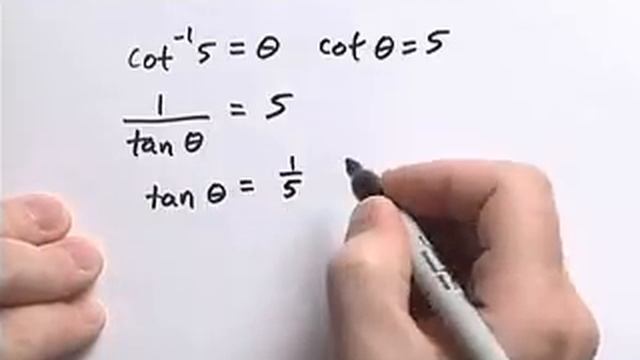 cot⁻¹ 5 = θ cot θ = 5
1/tan θ = 5
tan θ = 1/5